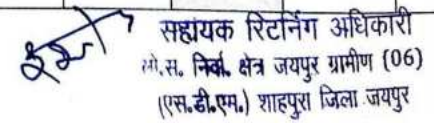 सहायक रिटर्निंग अधिकारी
लो.स. निर्वा. क्षेत्र जयपुर ग्रामीण (06)
(एस.डी.एम.) शाहपुरा जिला जयपुर